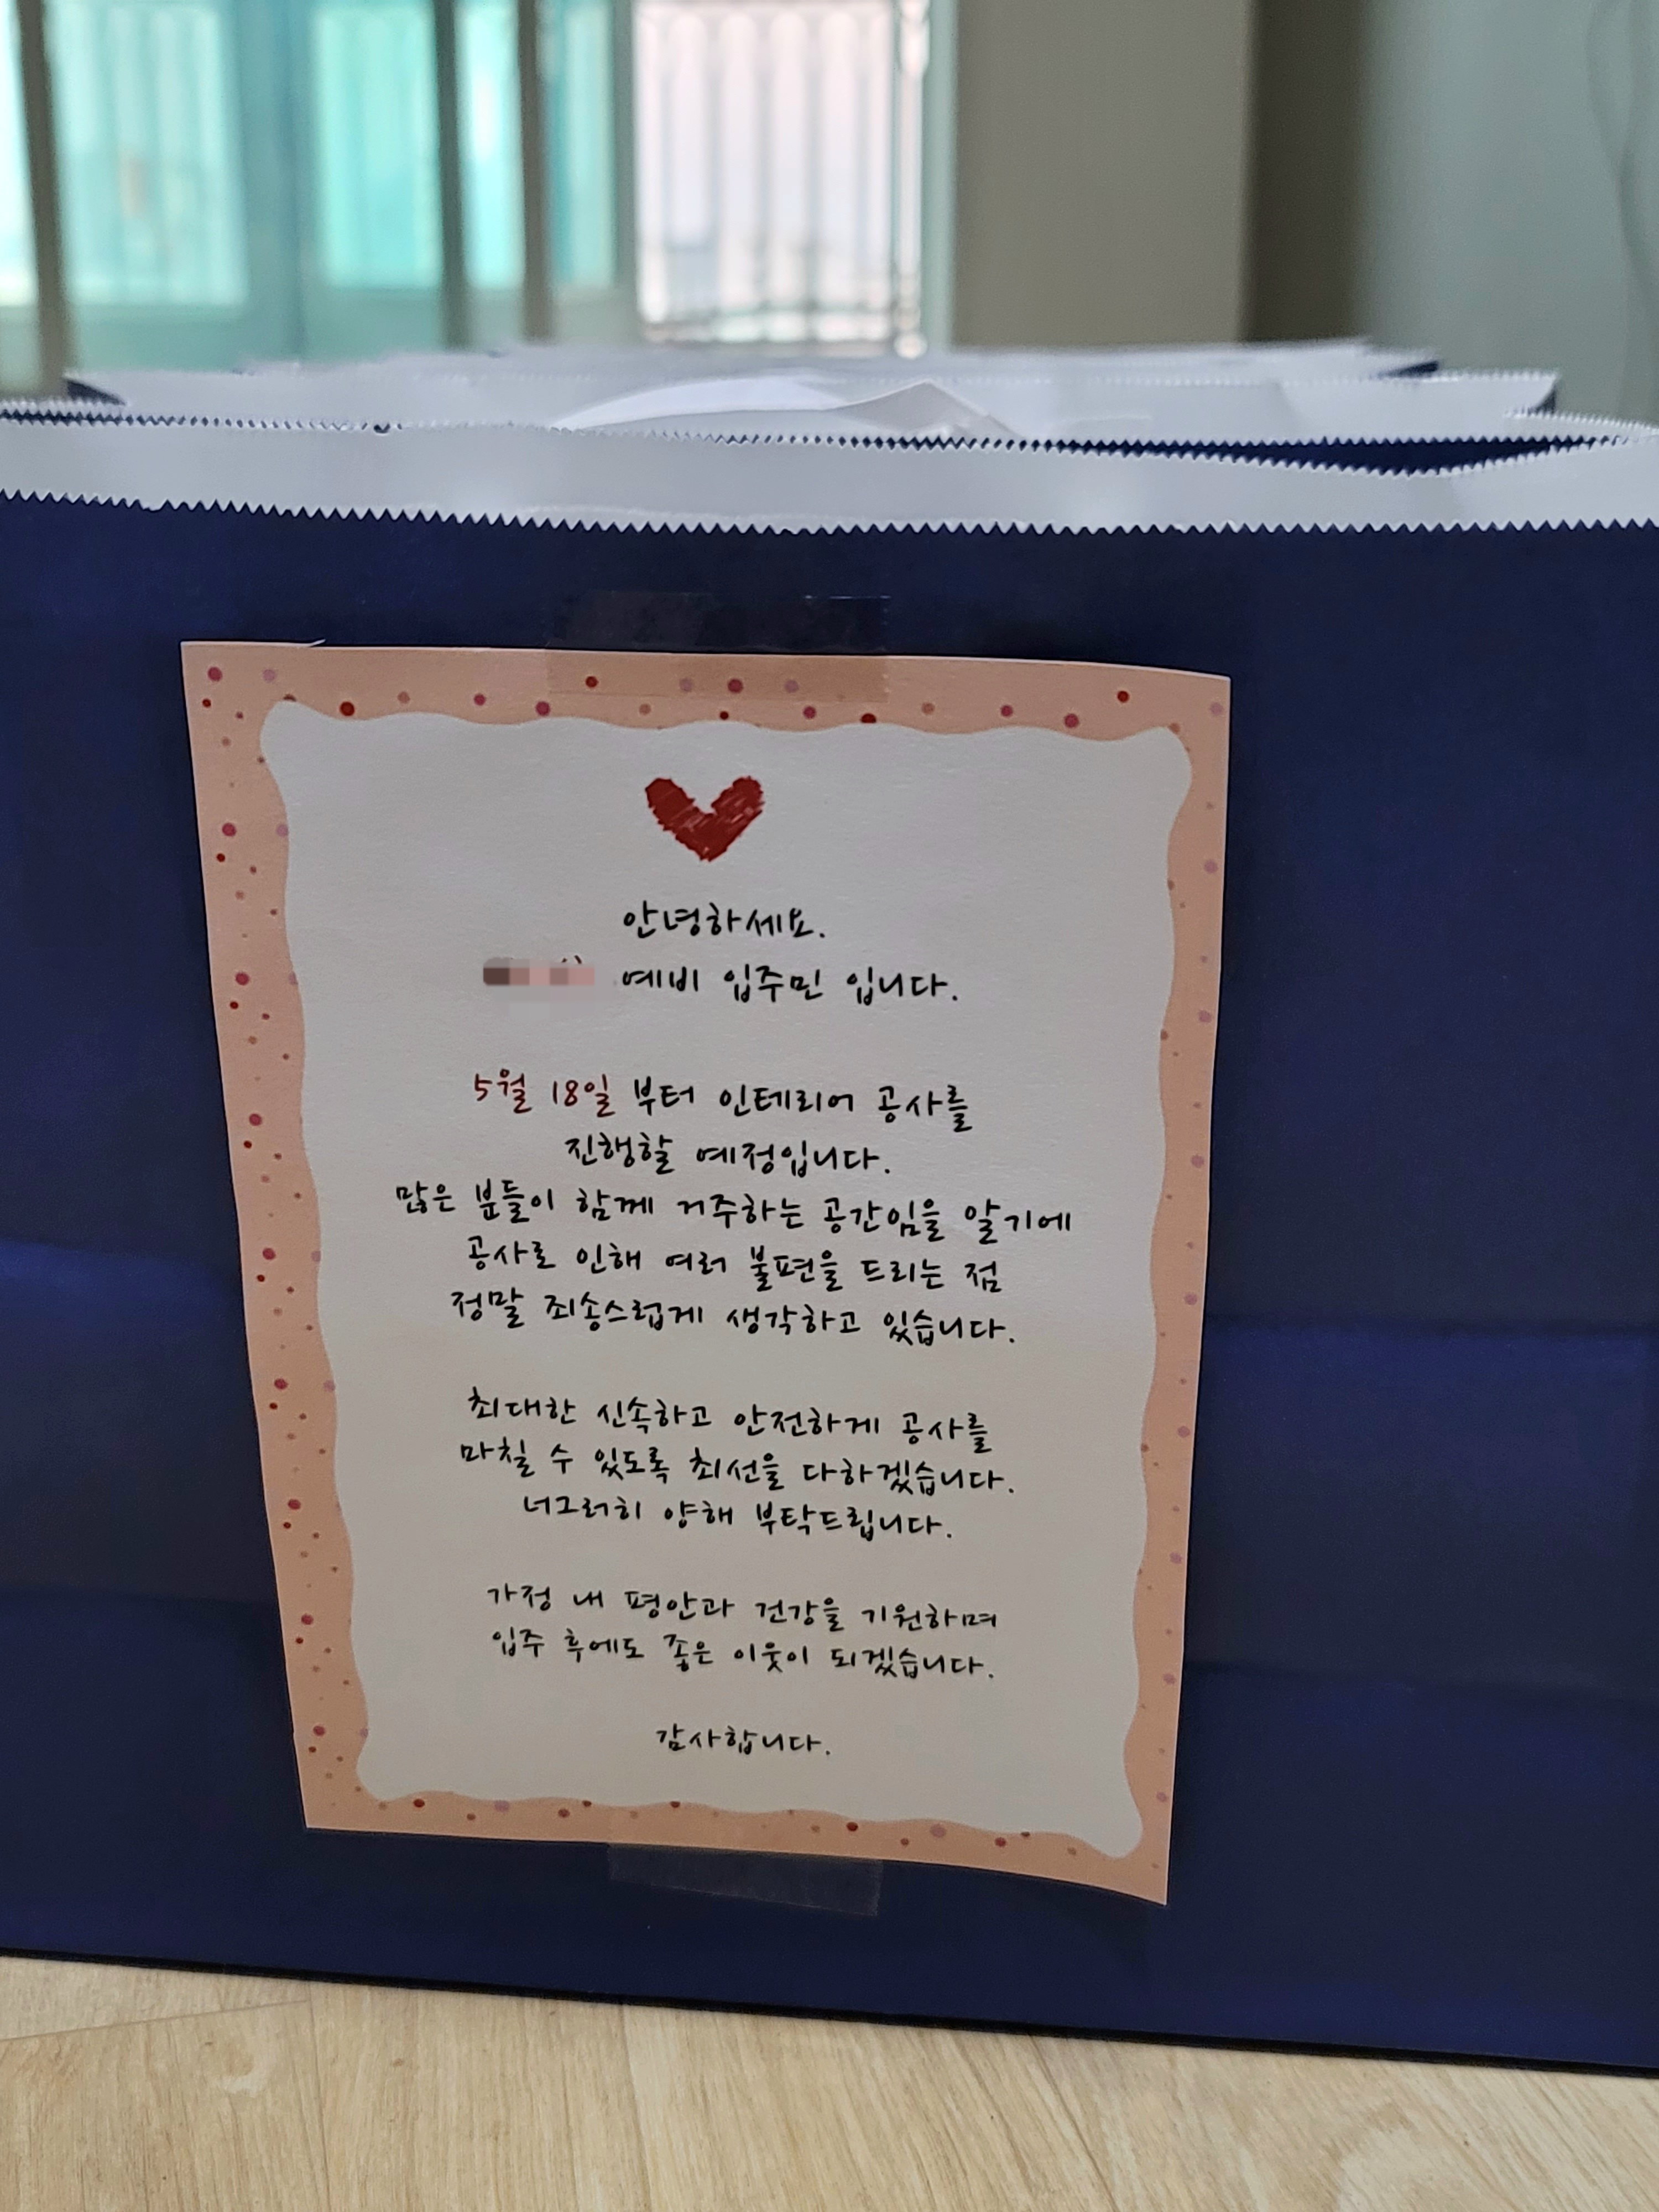 안녕하세요.
예비 입주민 입니다.
5월 18일 부터 인테리어 공사를
진행할 예정입니다.
많은 분들이 함께 거주하는 공간임을 알기에
공사로 인해 여러 불편을 드리는 점
정말 죄송스럽게 생각하고 있습니다.
최대한 신속하고 안전하게 공사를
마칠 수 있도록 최선을 다하겠습니다.
너그러히 양해 부탁드립니다.
가정 내 평안과 건강을 기원하며
입주 후에도 좋은 이웃이 되겠습니다.
감사합니다.